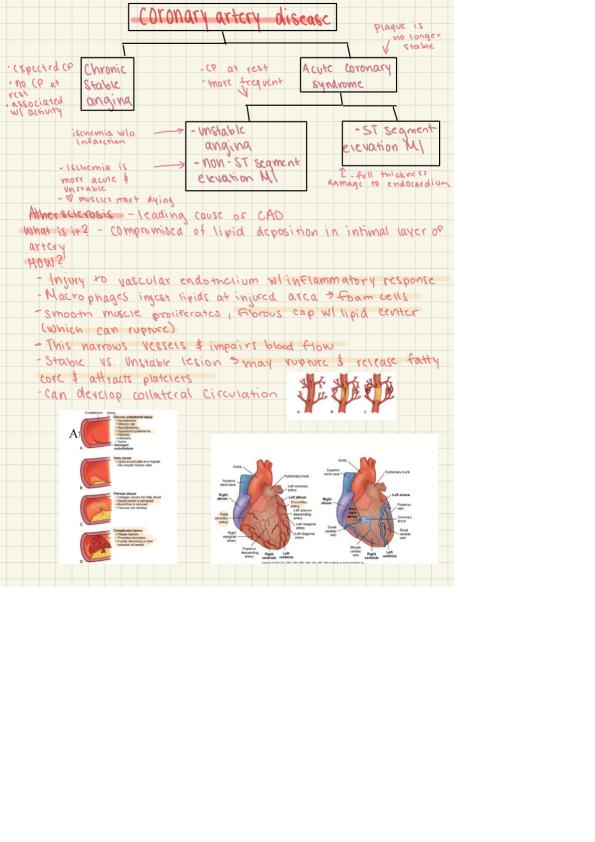 Coronary artery disease
plaque is
no longer
stable
· Expected CP
· no CP at
rest
· associated
w/ activity
Chronic
Stable
angina
- CP at rest
- more frequent
Acute coronary
syndrome
ischemia w/o
infarction
- unstable
angina
- non-ST segment
elevation MI
- ST segment
elevation MI
- ischemia is
more acute &
unstable
- ♡ muscles start dying
- full thickness
damage to endocardium
Atherosclerosis - leading cause of CAD
What is it? - compromised of lipid deposition in intimal layer of
artery
HOW?
- Injury to vascular endothelium w/ inflammatory response
- Macrophages ingest lipids at injured area → foam cells
- smooth muscle proliferates, fibrous cap w/ lipid center
(which can rupture)
- This narrows vessels & impairs blood flow
- Stable vs. Unstable lesion → may rupture & release fatty
core & attracts platelets
· Can develop collateral circulation
A
B
C
Endothelium
Intima
Chronic endothelial injury
Damaged
endothelium
A
Fatty streak
B
Fibrous plaque
C
Complicated lesion
D
Aorta
Superior
vena cava
Pulmonary trunk
Left coronary
artery
Right
atrium
Left atrium
Circumflex
artery
Right
coronary
artery
Left anterior
descending
artery
Left marginal
artery
Right
marginal
artery
Left diagonal
artery
Posterior
descending
artery
Right
ventricle
Left
ventricle
Aorta
Superior
vena cava
Pulmonary trunk
Right
atrium
Left atrium
Posterior
vein
Coronary
sinus
Small
cardiac
vein
Great
cardiac
vein
Middle
cardiac
vein
Right
ventricle
Left
ventricle